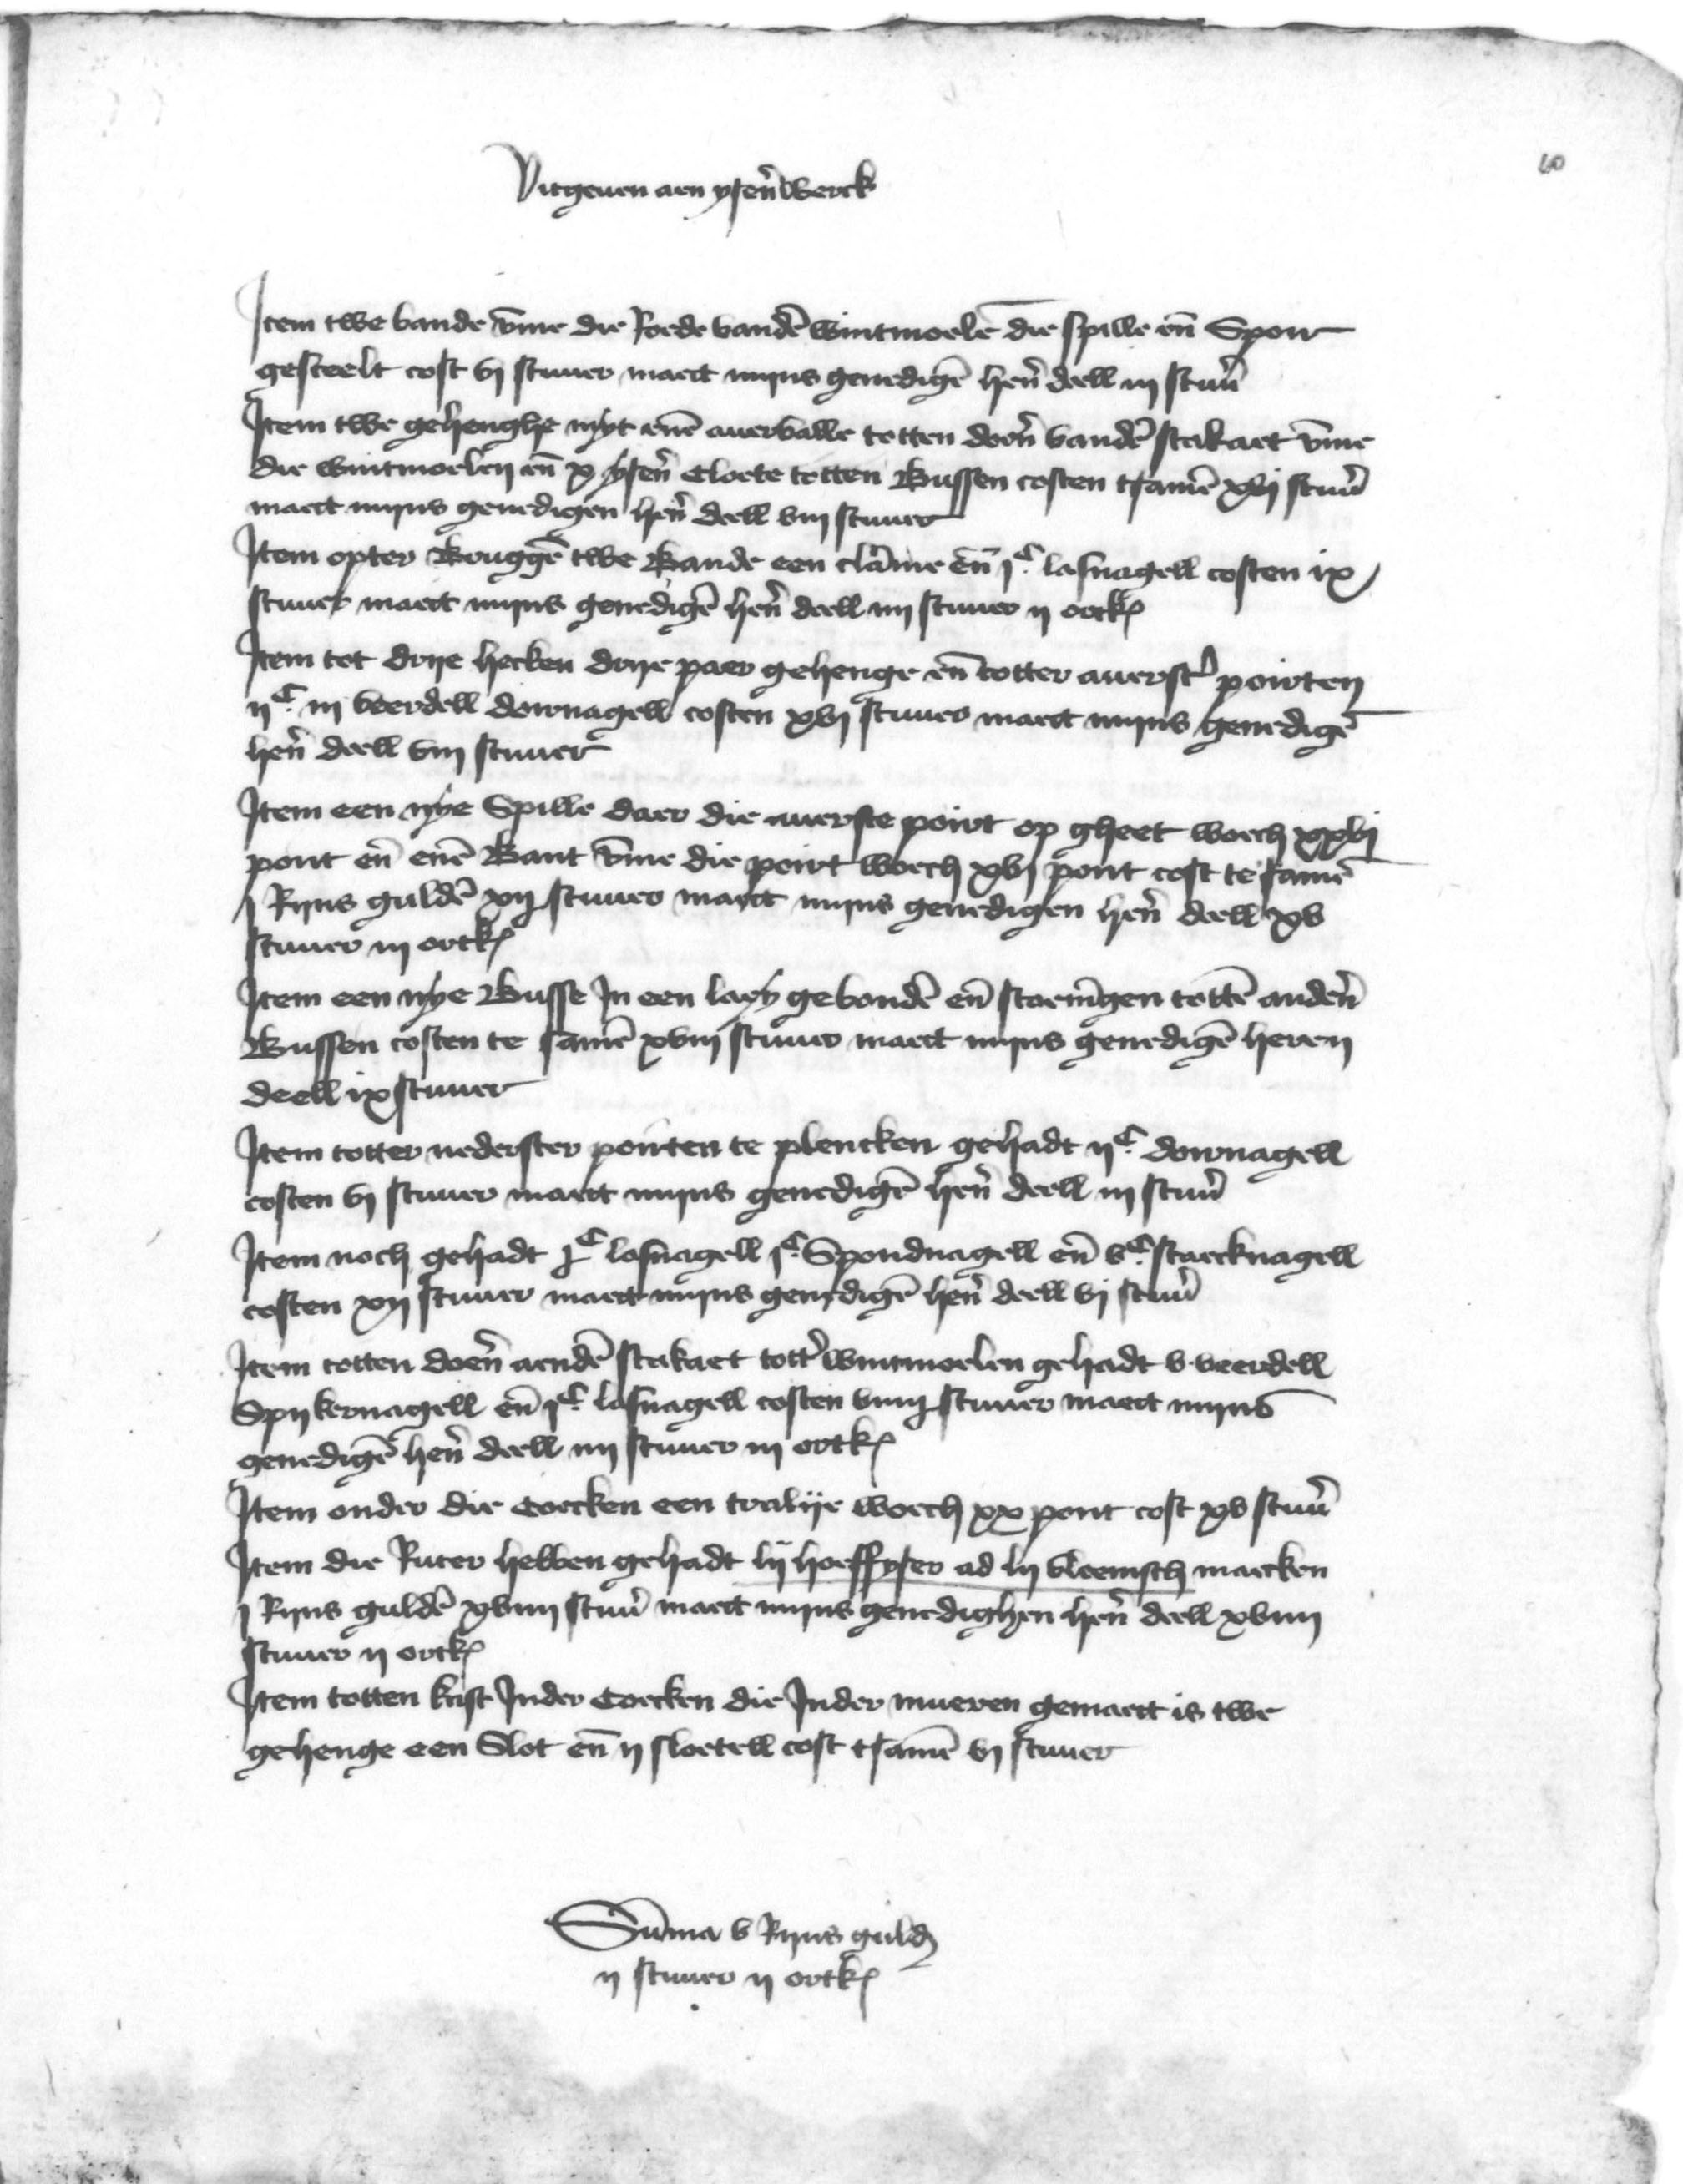 60
Vitgeuen aen yseñwerck
Item twe bande v̄me die Roede vandē wintmoelē die spille eñ Spoer
gesteelt cost vj stuuer maect mijns genedigē heñ deell iij stuū
Item twe gehenghe myt enē auervalle totten doeñ vandē stakaet v̄me
die wintmoelen eñ x yseñ Cloete totten Bussen costen tsamē xvj stuū
maect mijns genedigen heñ deell viij stuuer
Item opter Bruggē twe Bande een clāme eñ jᶜ lasnagell costen ix
stuuer maect mijns genedigē heñ deell iiij stuuer ij ortk
Item tot drye hecken drye paer gehenge eñ totter auerst poirten
ijᶜ iij veerdell dornagell costen xvj stuuer maect mijns genedigē
heñ deell viij stuuer
Item een nye Spille daer die auerste poirt op gheet woech xxvj
pont eñ enē Bant v̄me die poirt woech xvj pont cost te samē
j Rijns guldē xij stuuer maect mijns genedigen heñ deell xv
stuuer iij ortk
Item een nye Busse In een laey gebondē eñ staeningen tottē andeñ
Bussen costen te samē xviij stuuer maect mijns genedigē heren
deell ix stuuer
Item totter nederster poirten te plencken gehadt ijᶜ dornagell
costen vj stuuer maect mijns genedigē heñ deell iij stuū
Item noch gehadt jᶜ lasnagell jᶜ Spondnagell eñ vᶜ staecknagell
costen xij stuuer maect mijns genedigē heñ deell vj stuū
Item totten doeñ aendē stakaet tott wintmoelen gehadt v veerdell
Spykernagell eñ jᶜ lasnagell costen viiij stuuer maect mijns
genedigē heñ deell iiij stuuer iij ortk
Item onder die Coecken een tralije woech xx pont cost xv stuū
Item die Ruter hebben gehadt lij hoeffyser ad lij vleemsch maecken
j Rijns guldē xviiij stuū maect mijns genedighen heñ deell xviiij
stuuer ij ortk
Item totten kist Inder Coecken die Inder mueren gemaect is twe
gehenge een Slot eñ ij sloetell cost tsamē vj stuuer
Sūma v Rijns guld
ij stuuer ij ortk